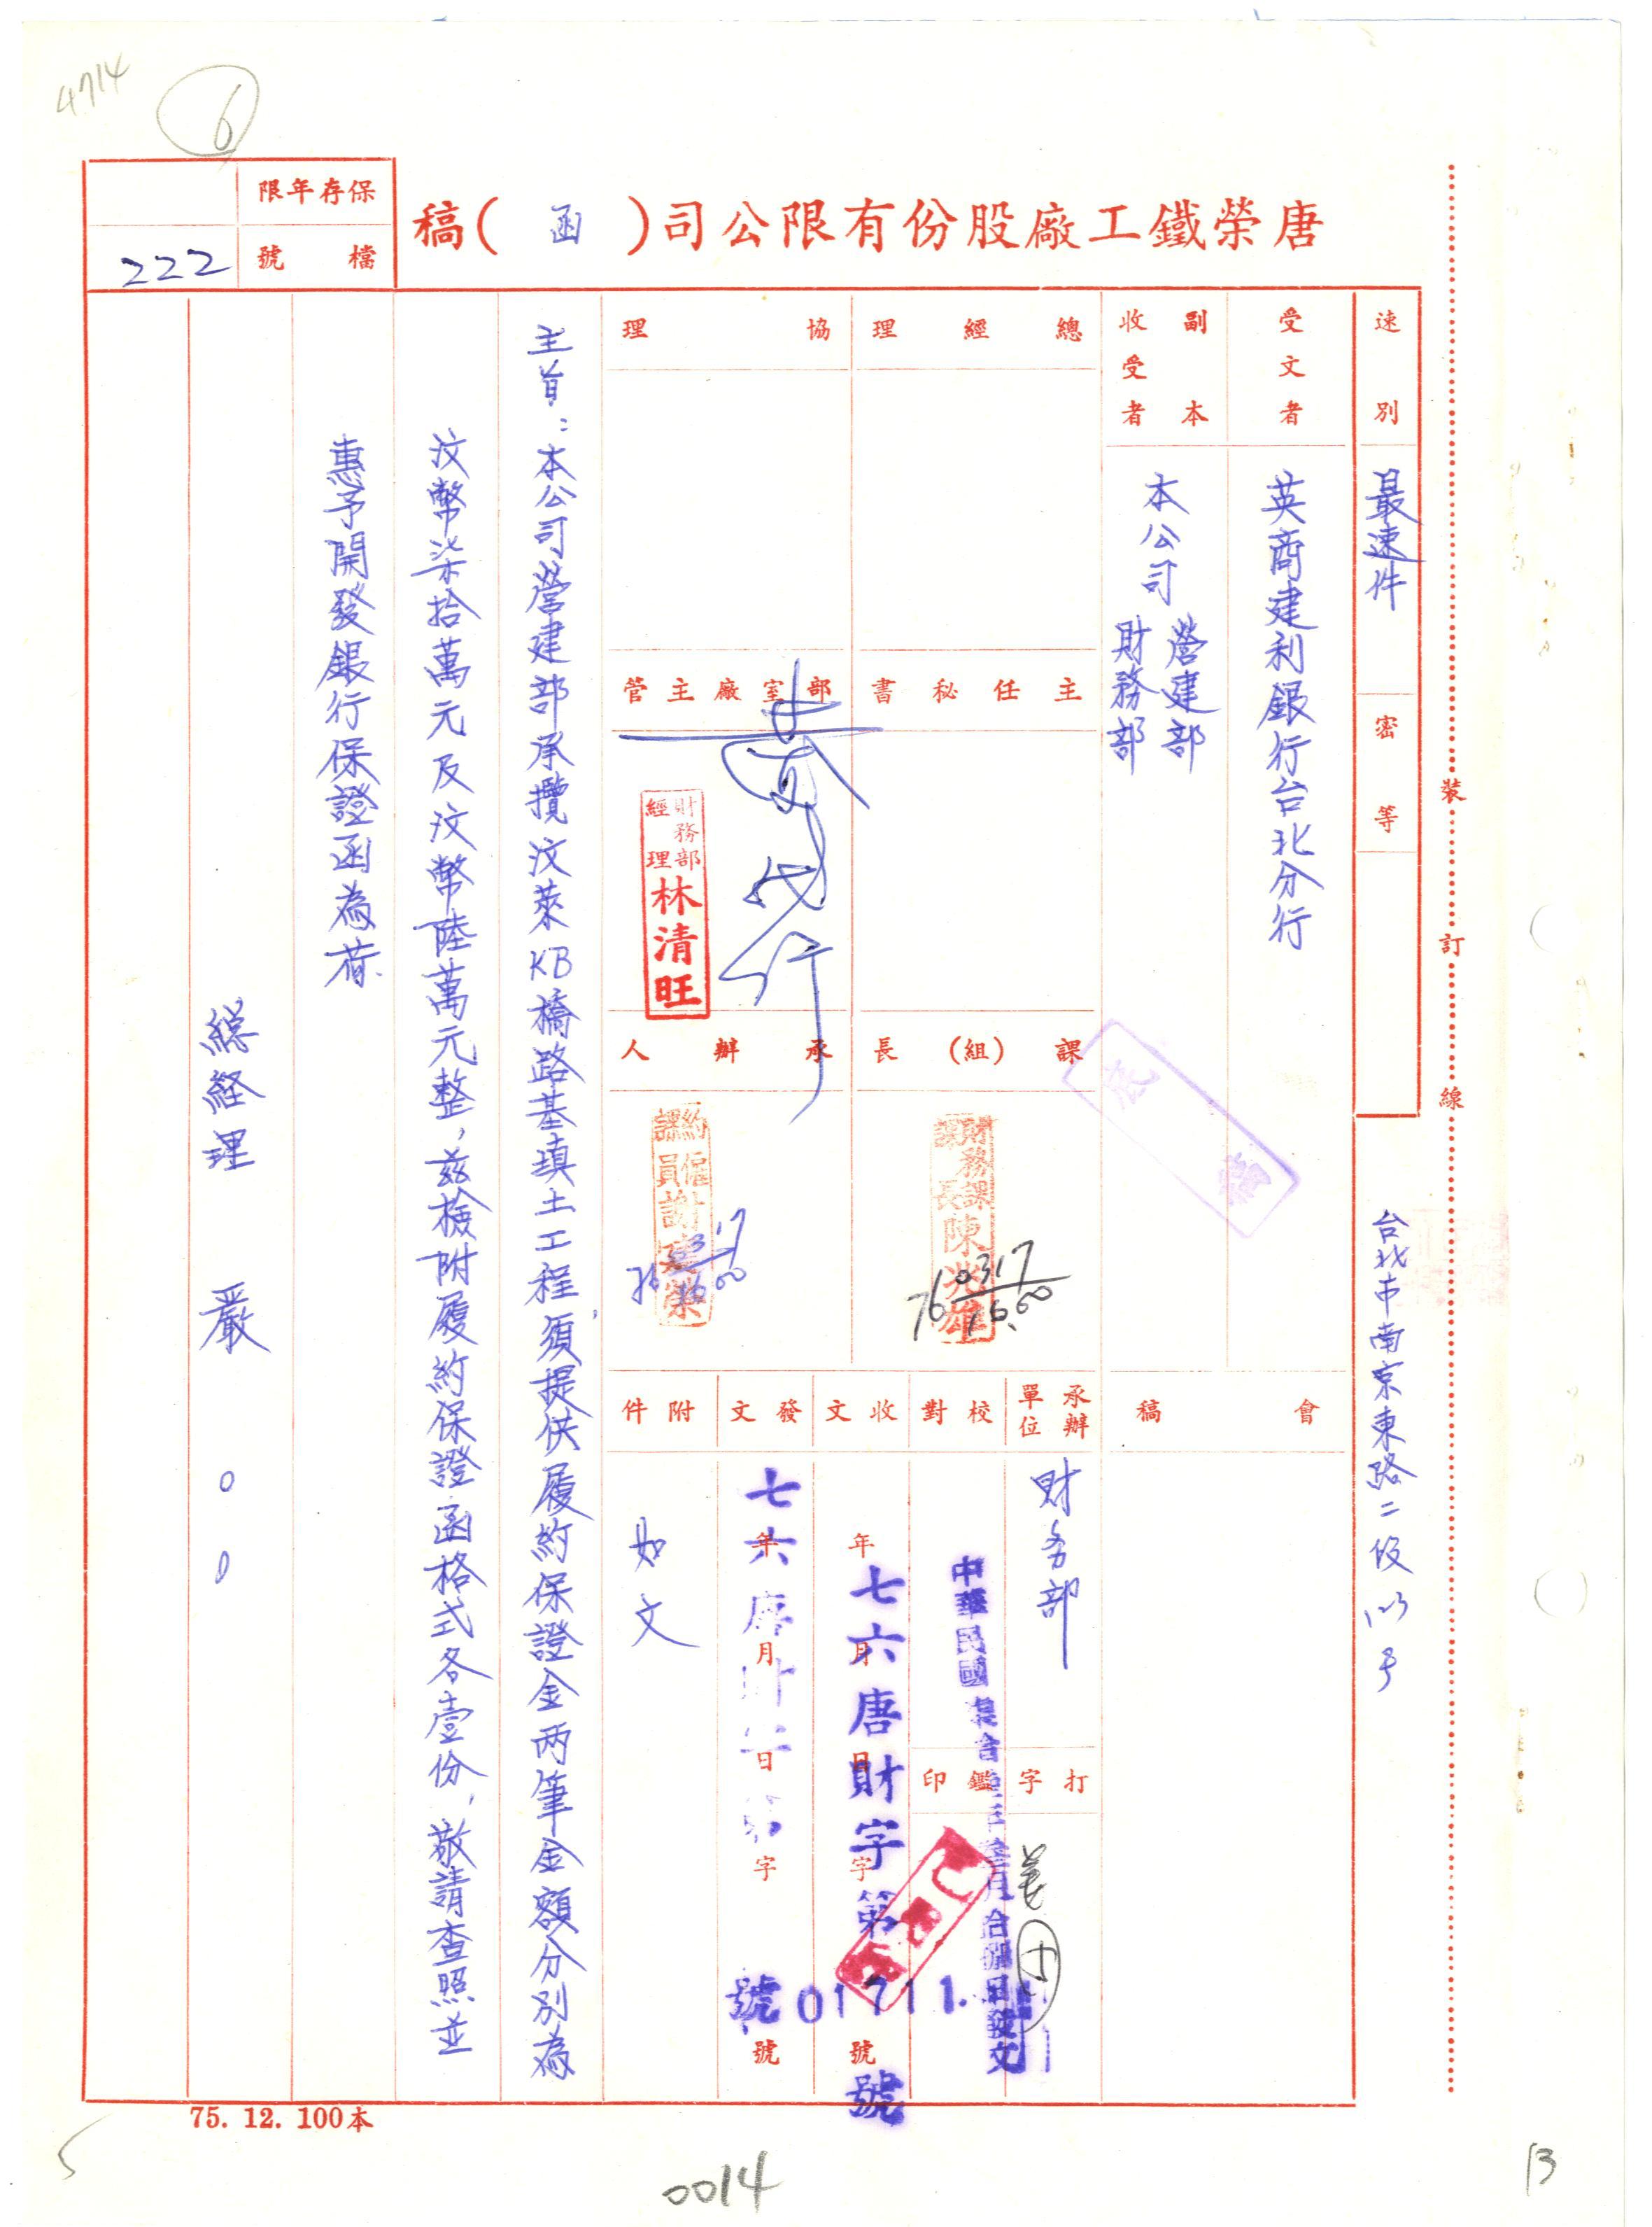 4714
6
保存年限
檔號
222
唐榮鐵工廠股份有限公司(函)稿
速別
最速件
密等
台北市南京東路二段123号
受文者
英商建利銀行台北分行
副本收受者
本公司
營建部
財務部
會稿
總經理
主任秘書
課(組)長
財務課課長陳兆雄
76 0317/16.00
協理
部室廠主管
財務部經理林清旺
承辦人
約僱課員謝建榮
76 03 17/16 00
承辦單位
財务部
打字
校對
鑑印
收文
年月日字號
七六唐財字第 號
發文
年月日字號
七六唐
號01711
附件
如文
主旨：本公司營建部承攬汶萊KB橋路基填土工程，須提供履約保證金两筆金額分別為
汶幣柒拾萬元及汶幣陸萬元整，茲檢附履約保證函格式各壹份，敬請查照並
惠予開發銀行保證函為荷。
總経理 嚴○○
裝訂線
75. 12. 100本
0014
13